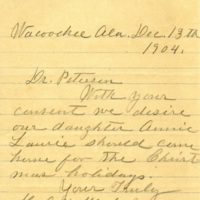 Wacoochee Ala. Dec. 13th
1904.
Dr. Petersen
With your
consent we desire
our daughter Annie
Laurie should come
home for the Christ
mas holidays.
Your Truly